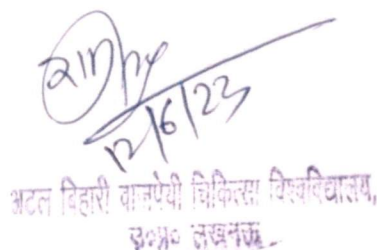 12/6/23
अटल बिहारी वाजपेयी चिकित्सा विश्वविद्यालय,
उ०प्र० लखनऊ